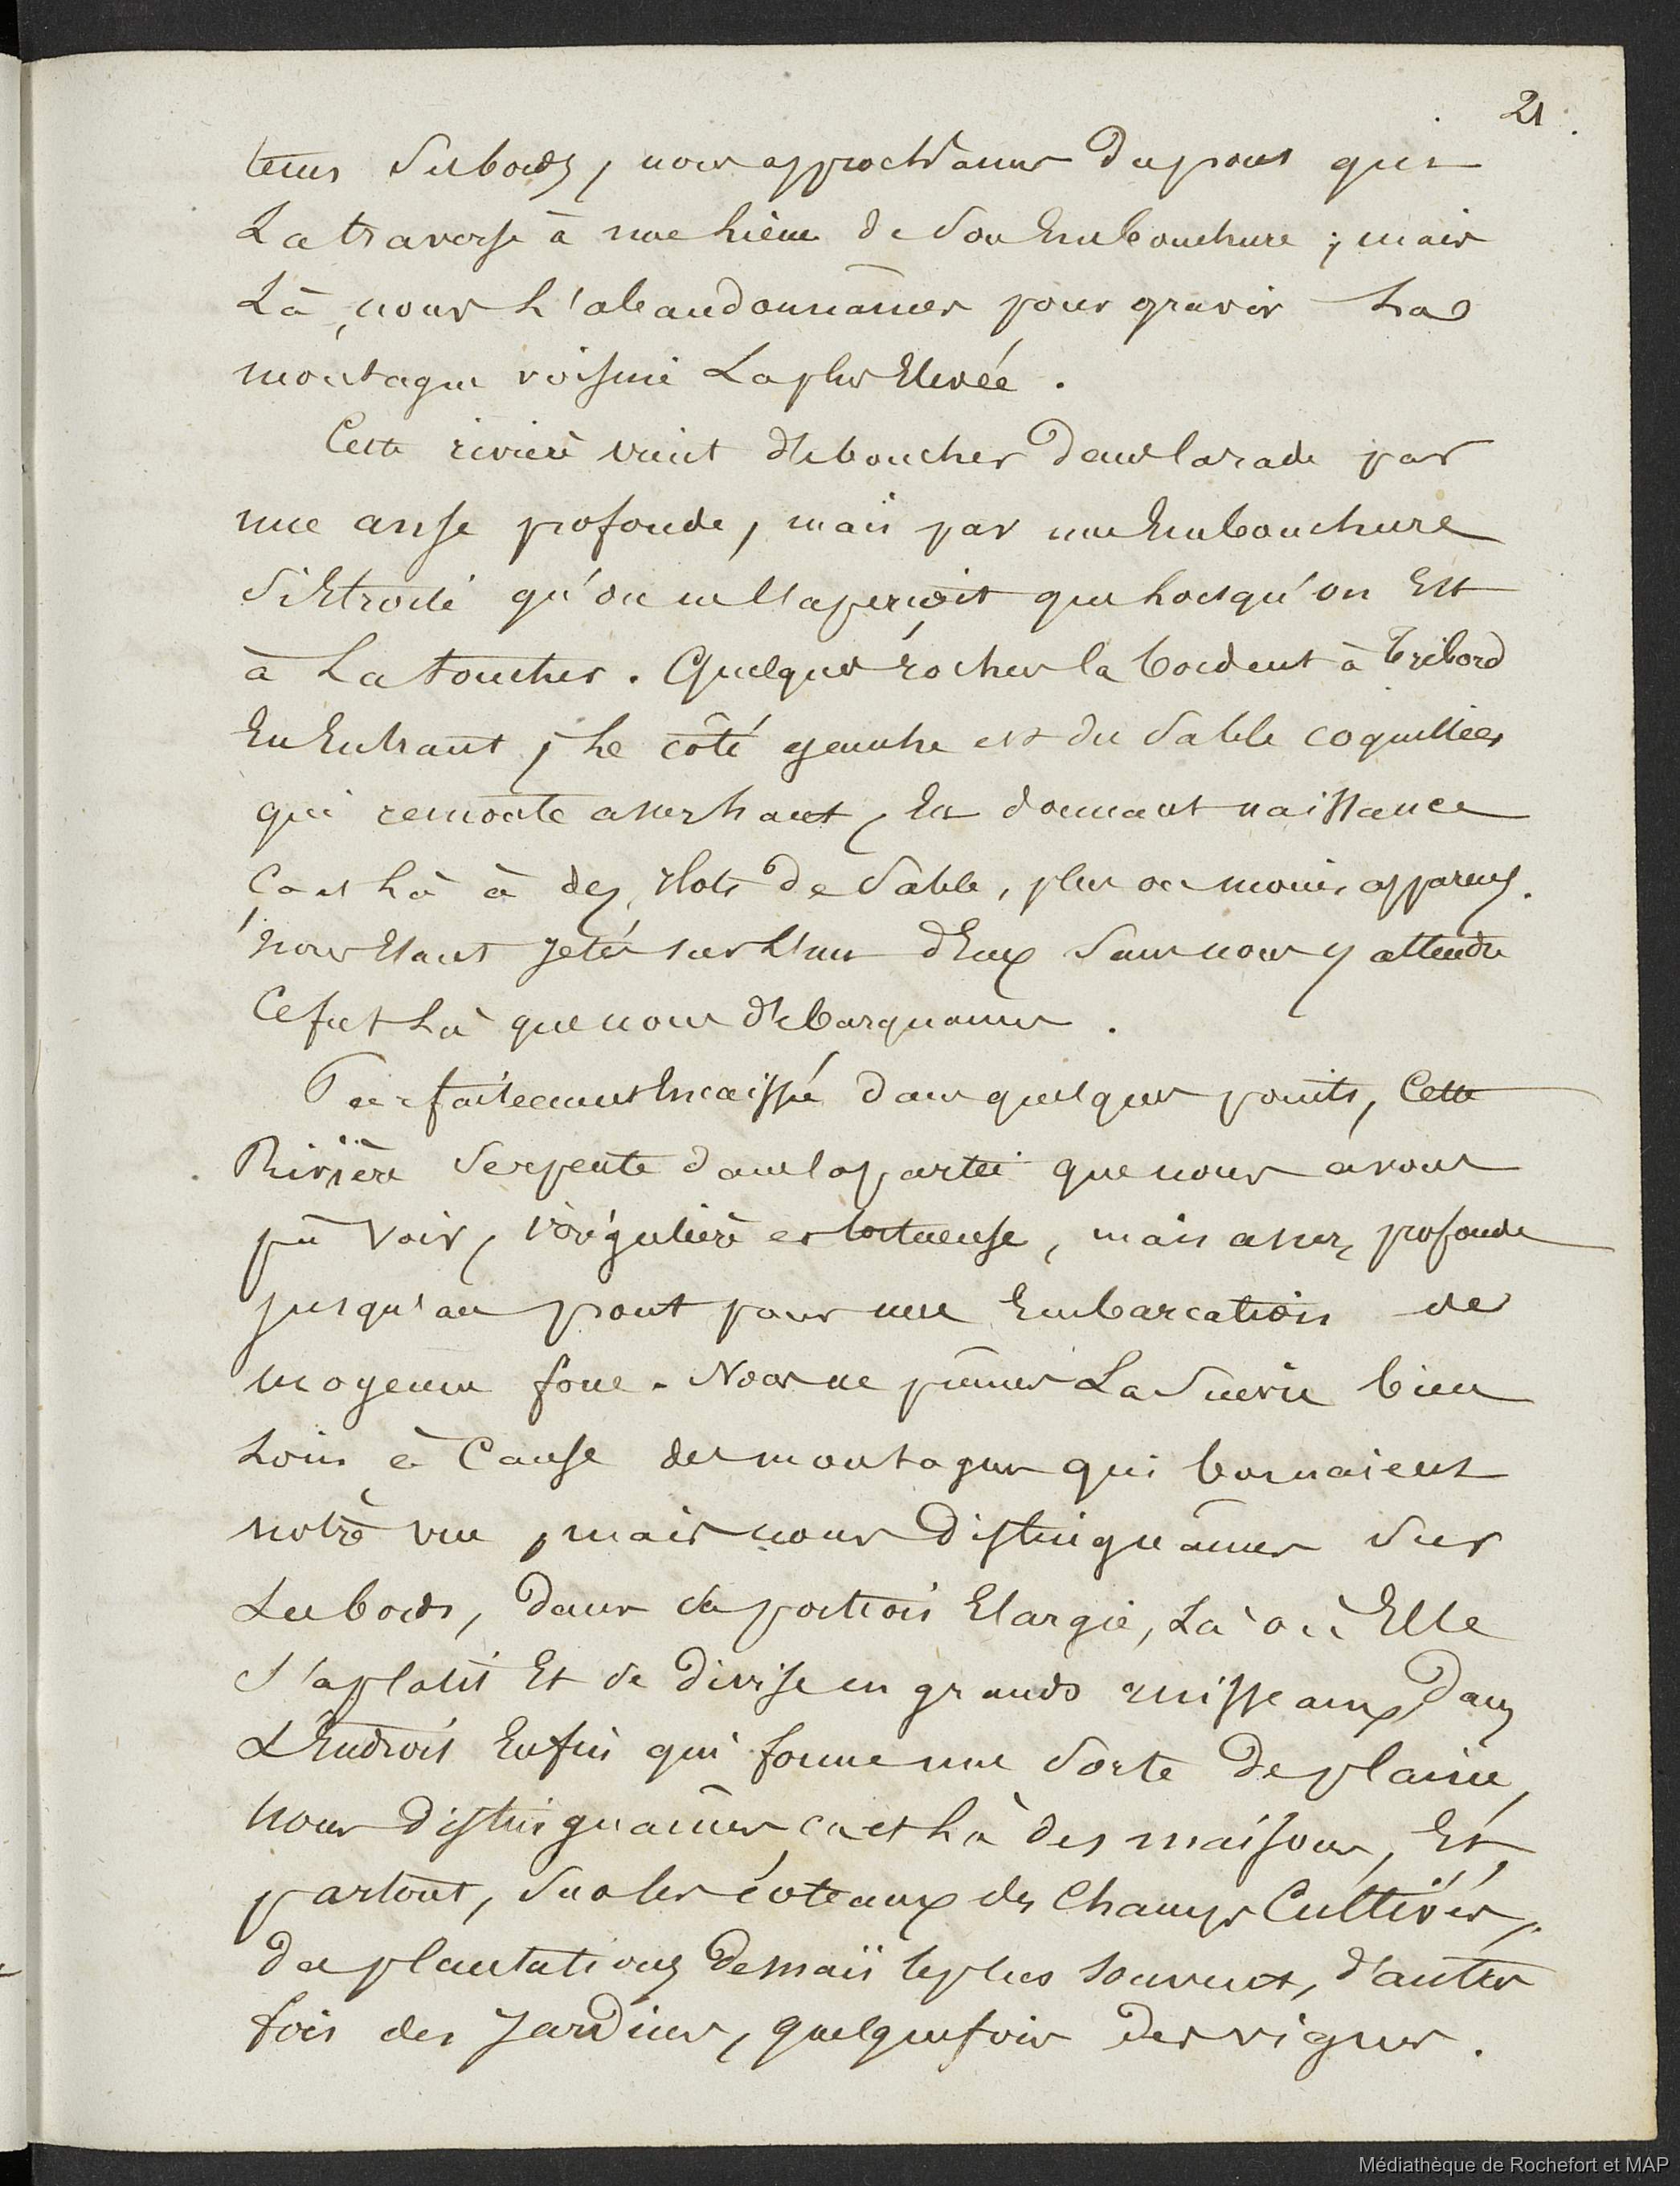 21.
tems ses bords, nous approchames du pont qui
La traverse à une lieue de son Embouchure ; mais
Là, nous L'abandonnâmes pour gravir La
montagne voisine La plus Elevée.
Cette rivière vient déboucher dans la rade par
une anse profonde, mais par une Embouchure
si Etroite qu'on ne l'aperçoit que Lorsqu'on Est
à La toucher. Quelques rochers la bordent à tribord
En Entrant, Le côté gauche est du sable coquillier
qui remonte assez haut, En donnant naissance
çà et Là à des ilots de sable, plus ou moins apparens.
nous étant jetés sur L'un d'Eux sans nous y attendre
Ce fut Là que nous débarquames.
Parfaitement Encaissée dans quelques points, Cette
Rivière serpente dans la partie que nous avons
pû voir, irrégulière et tortueuse, mais assez profonde
jusqu'au pont pour une Embarcation de
moyenne force. Nous ne pûmes La suivre bien
Loin à Cause des montagnes qui bornaient
notre vue, mais nous distinguâmes sur
Les bords, dans sa portion Elargie, Là où Elle
s'aplatit Et se divise en grands ruisseaux, dans
L'Endroit Enfin qui forme une sorte de plaine,
nous distinguâmes, çà et Là des maisons, Et
partout, sur les côteaux des Champs Cultivés,
des plantations de maïs le plus souvent, d'autres
fois des Jardins, quelquefois des vignes.
Médiathèque de Rochefort et MAP